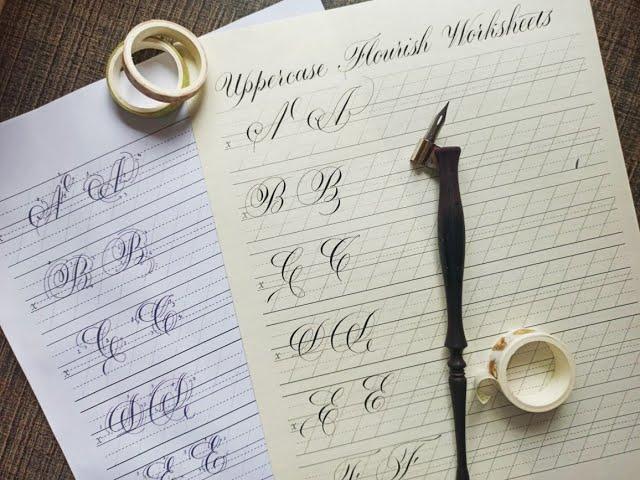 Uppercase Flourish Worksheets
x A A
x B B
x C C
x D D
x E E
F F
x A A
x B B
x C C
x D D
x E E